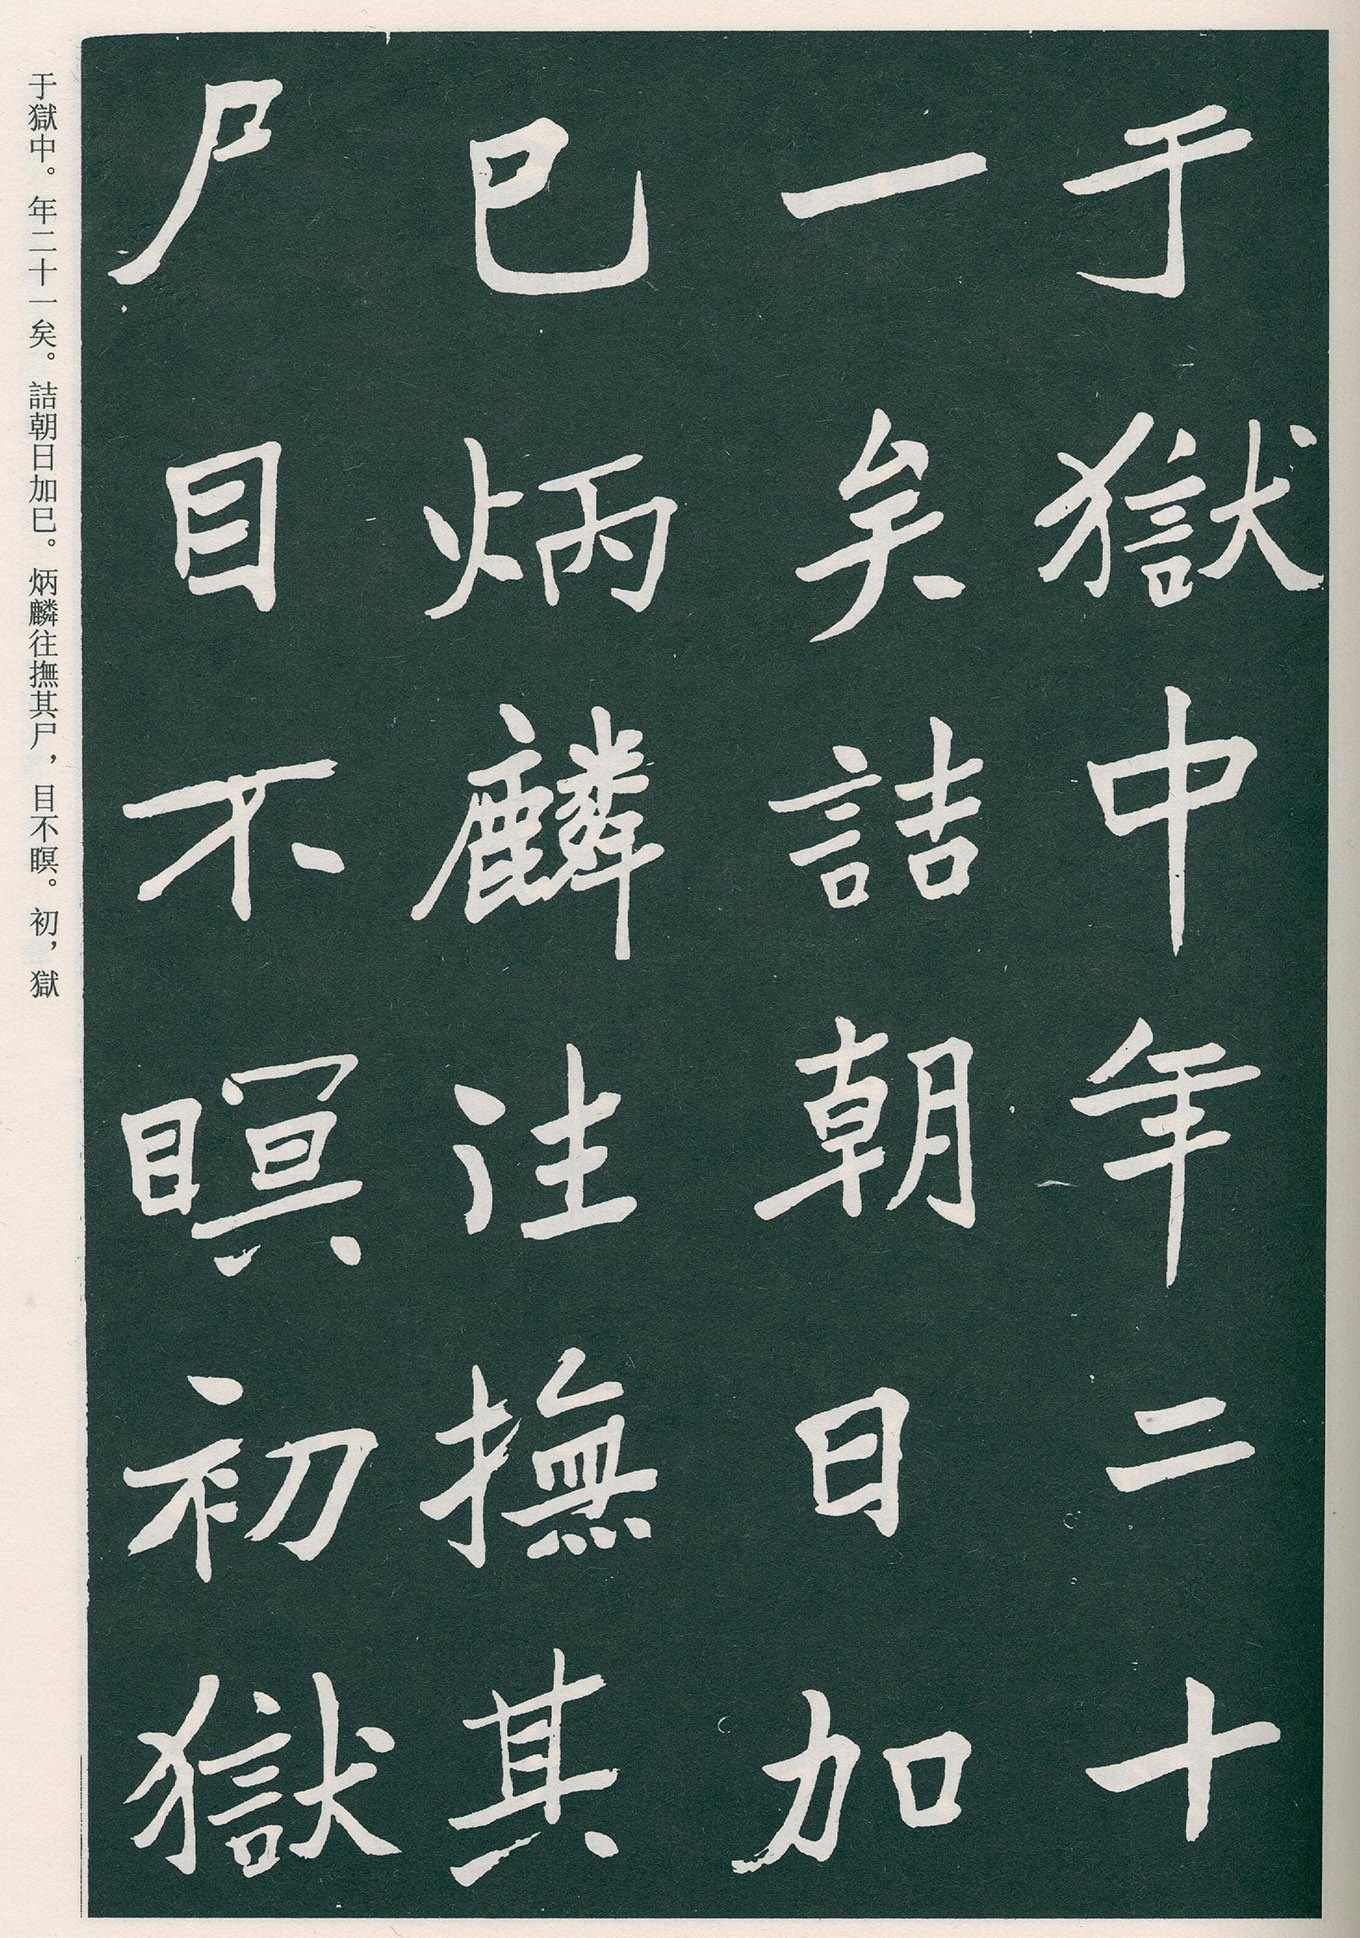 于獄中年二十
一矣詰朝日加
巳炳麟往撫其
尸目不瞑初獄
于獄中。年二十一矣。詰朝日加巳。炳麟往撫其尸，目不瞑。初，獄